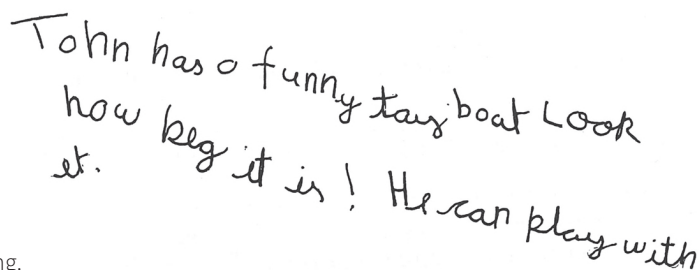 Tohn has a funny tay boat Look
how beg it is! He can play with
et.
ng.